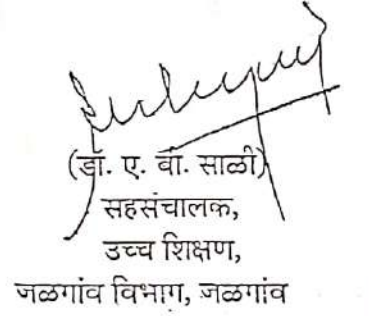 (डॉ. ए. बी. साळी)
सहसंचालक,
उच्च शिक्षण,
जळगांव विभाग, जळगांव